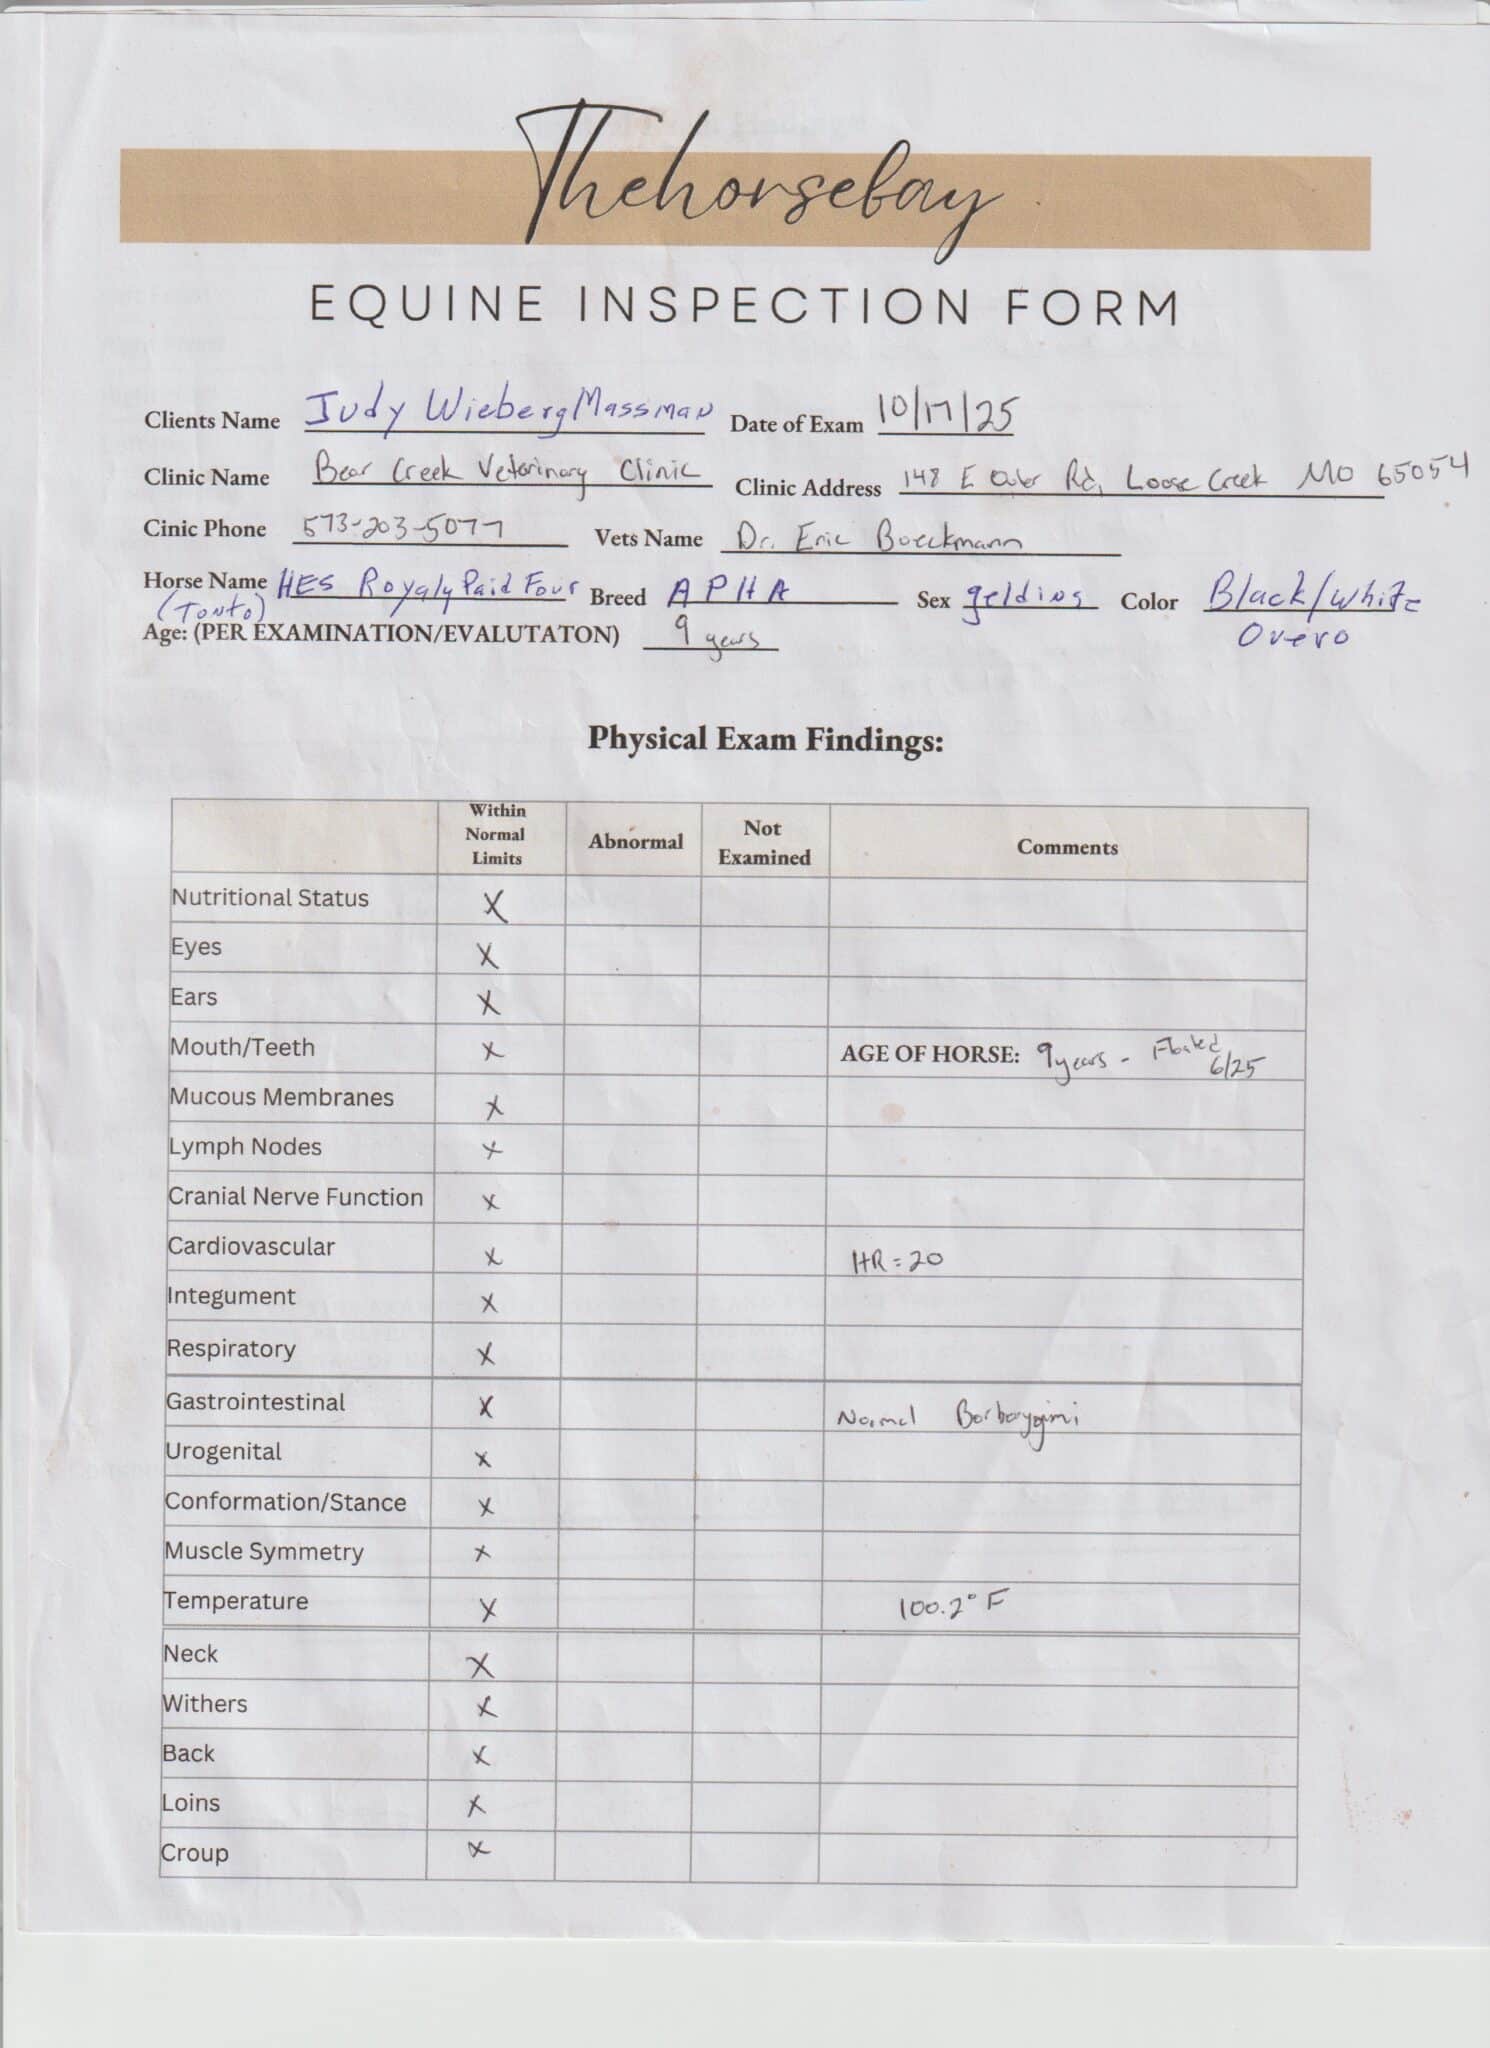 Thehorsebay
EQUINE INSPECTION FORM
Clients Name Judy Wieberg Massman Date of Exam 10/17/25
Clinic Name Bear Creek Veterinary Clinic Clinic Address 148 E Outer Rd, Loose Creek MO 65054
Cinic Phone 573-203-5077 Vets Name Dr. Eric Boeckmann
Horse Name HES Royaly Paid Four Breed APHA Sex gelding Color Black/White
(Tonto) Overo
Age: (PER EXAMINATION/EVALUTATON) 9 years
Physical Exam Findings:
Within Normal Limits Abnormal Not Examined Comments
Nutritional Status X
Eyes X
Ears X
Mouth/Teeth X AGE OF HORSE: 9 years - Floated 6/25
Mucous Membranes X
Lymph Nodes X
Cranial Nerve Function X
Cardiovascular X HR = 20
Integument X
Respiratory X
Gastrointestinal X Normal Borborygimi
Urogenital X
Conformation/Stance X
Muscle Symmetry X
Temperature X 100.2° F
Neck X
Withers X
Back X
Loins X
Croup X